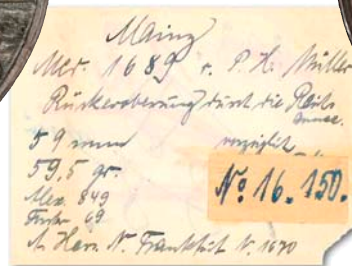 Mainz
Med. 1689 v. P. H. Müller
Rückeroberung durch die Reichs
armee.
59 mm vorzüglich
59,5 gr.
No 16. 150.
Alex. 849
Forster 69
A. Hess N. Frankfurt N. 1670